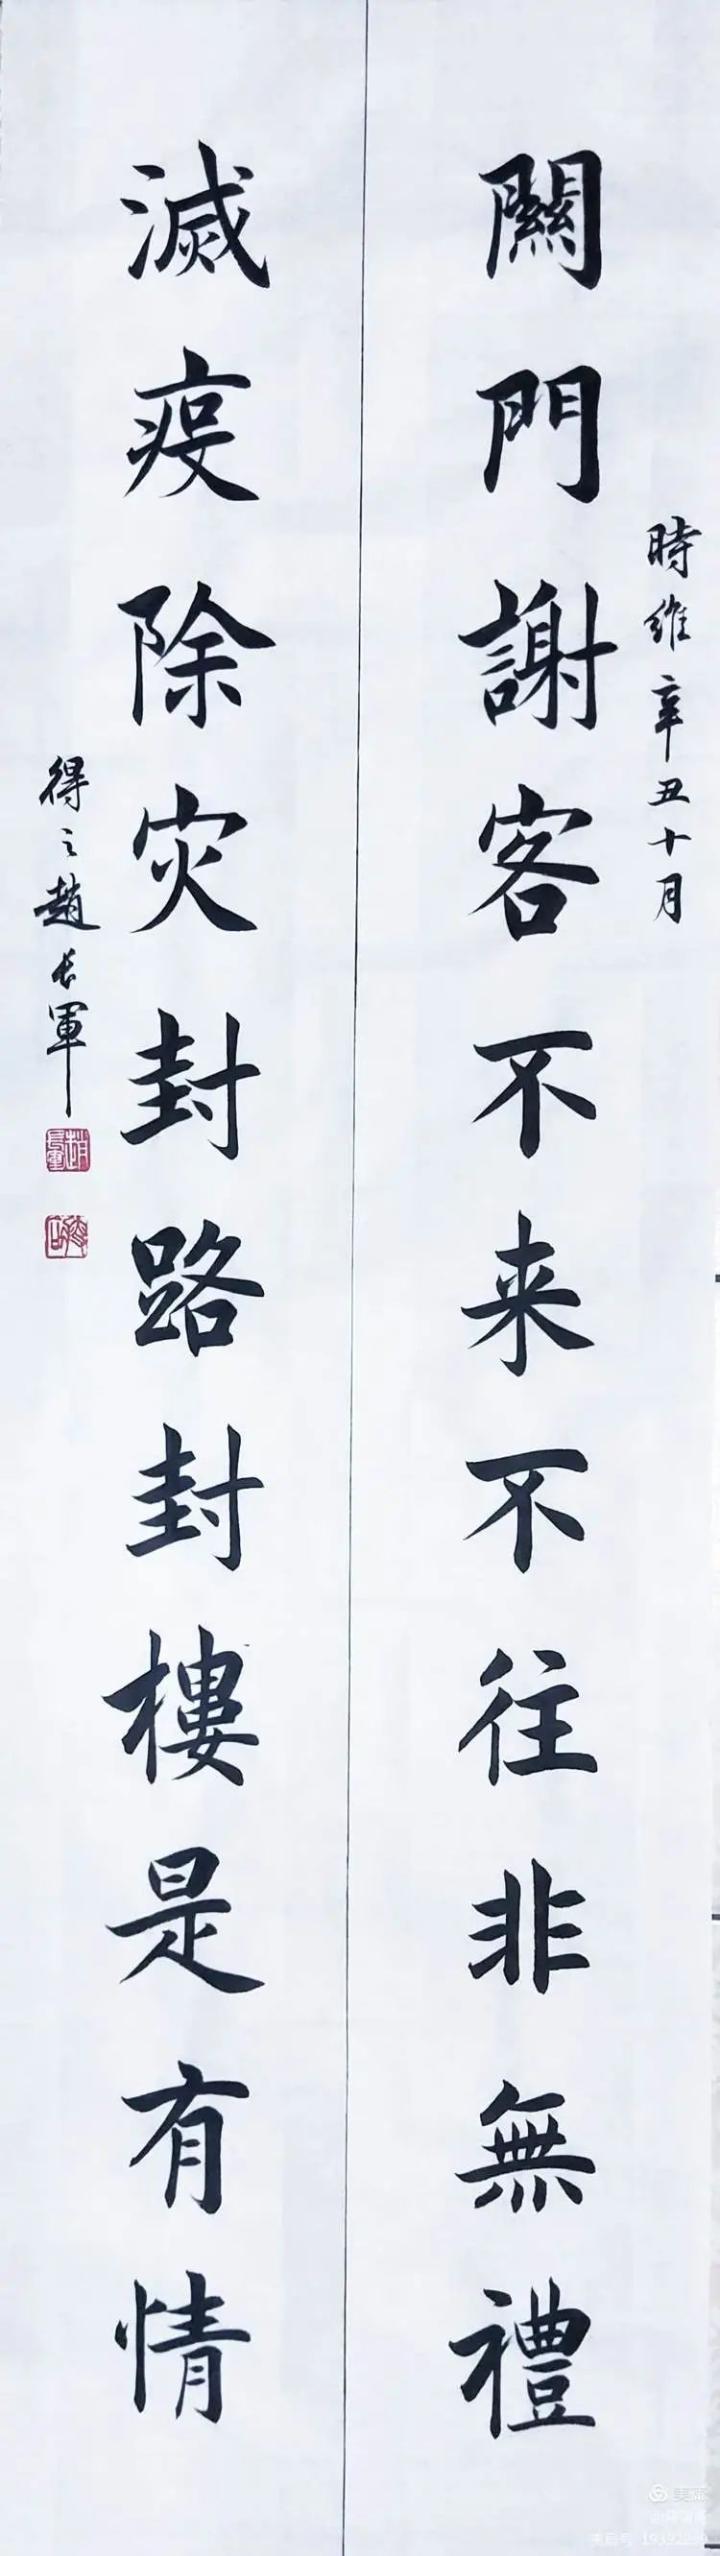 時維辛丑十月
關門謝客不来不往非無禮
滅疫除灾封路封樓是有情
得之趙長軍
趙長軍
美篇